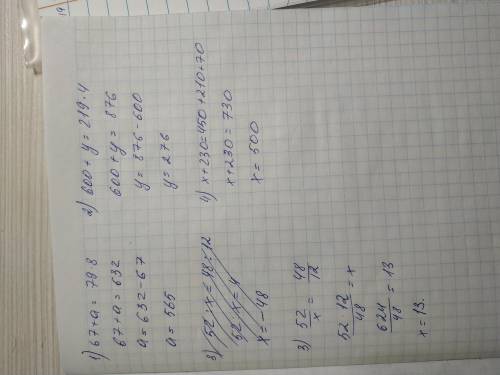 1) 67+a = 79·8
67+a = 632
a = 632-67
a = 565
2) 600+y = 219·4
600+y = 876
y = 876-600
y = 276
3) 52:x = 48:12
52:x = 4
x = -48
3) 52/x = 48/12
52·12/48 = x
624/48 = 13
x = 13.
4) x+230=450+210+70
x+230 = 730
x = 500
19